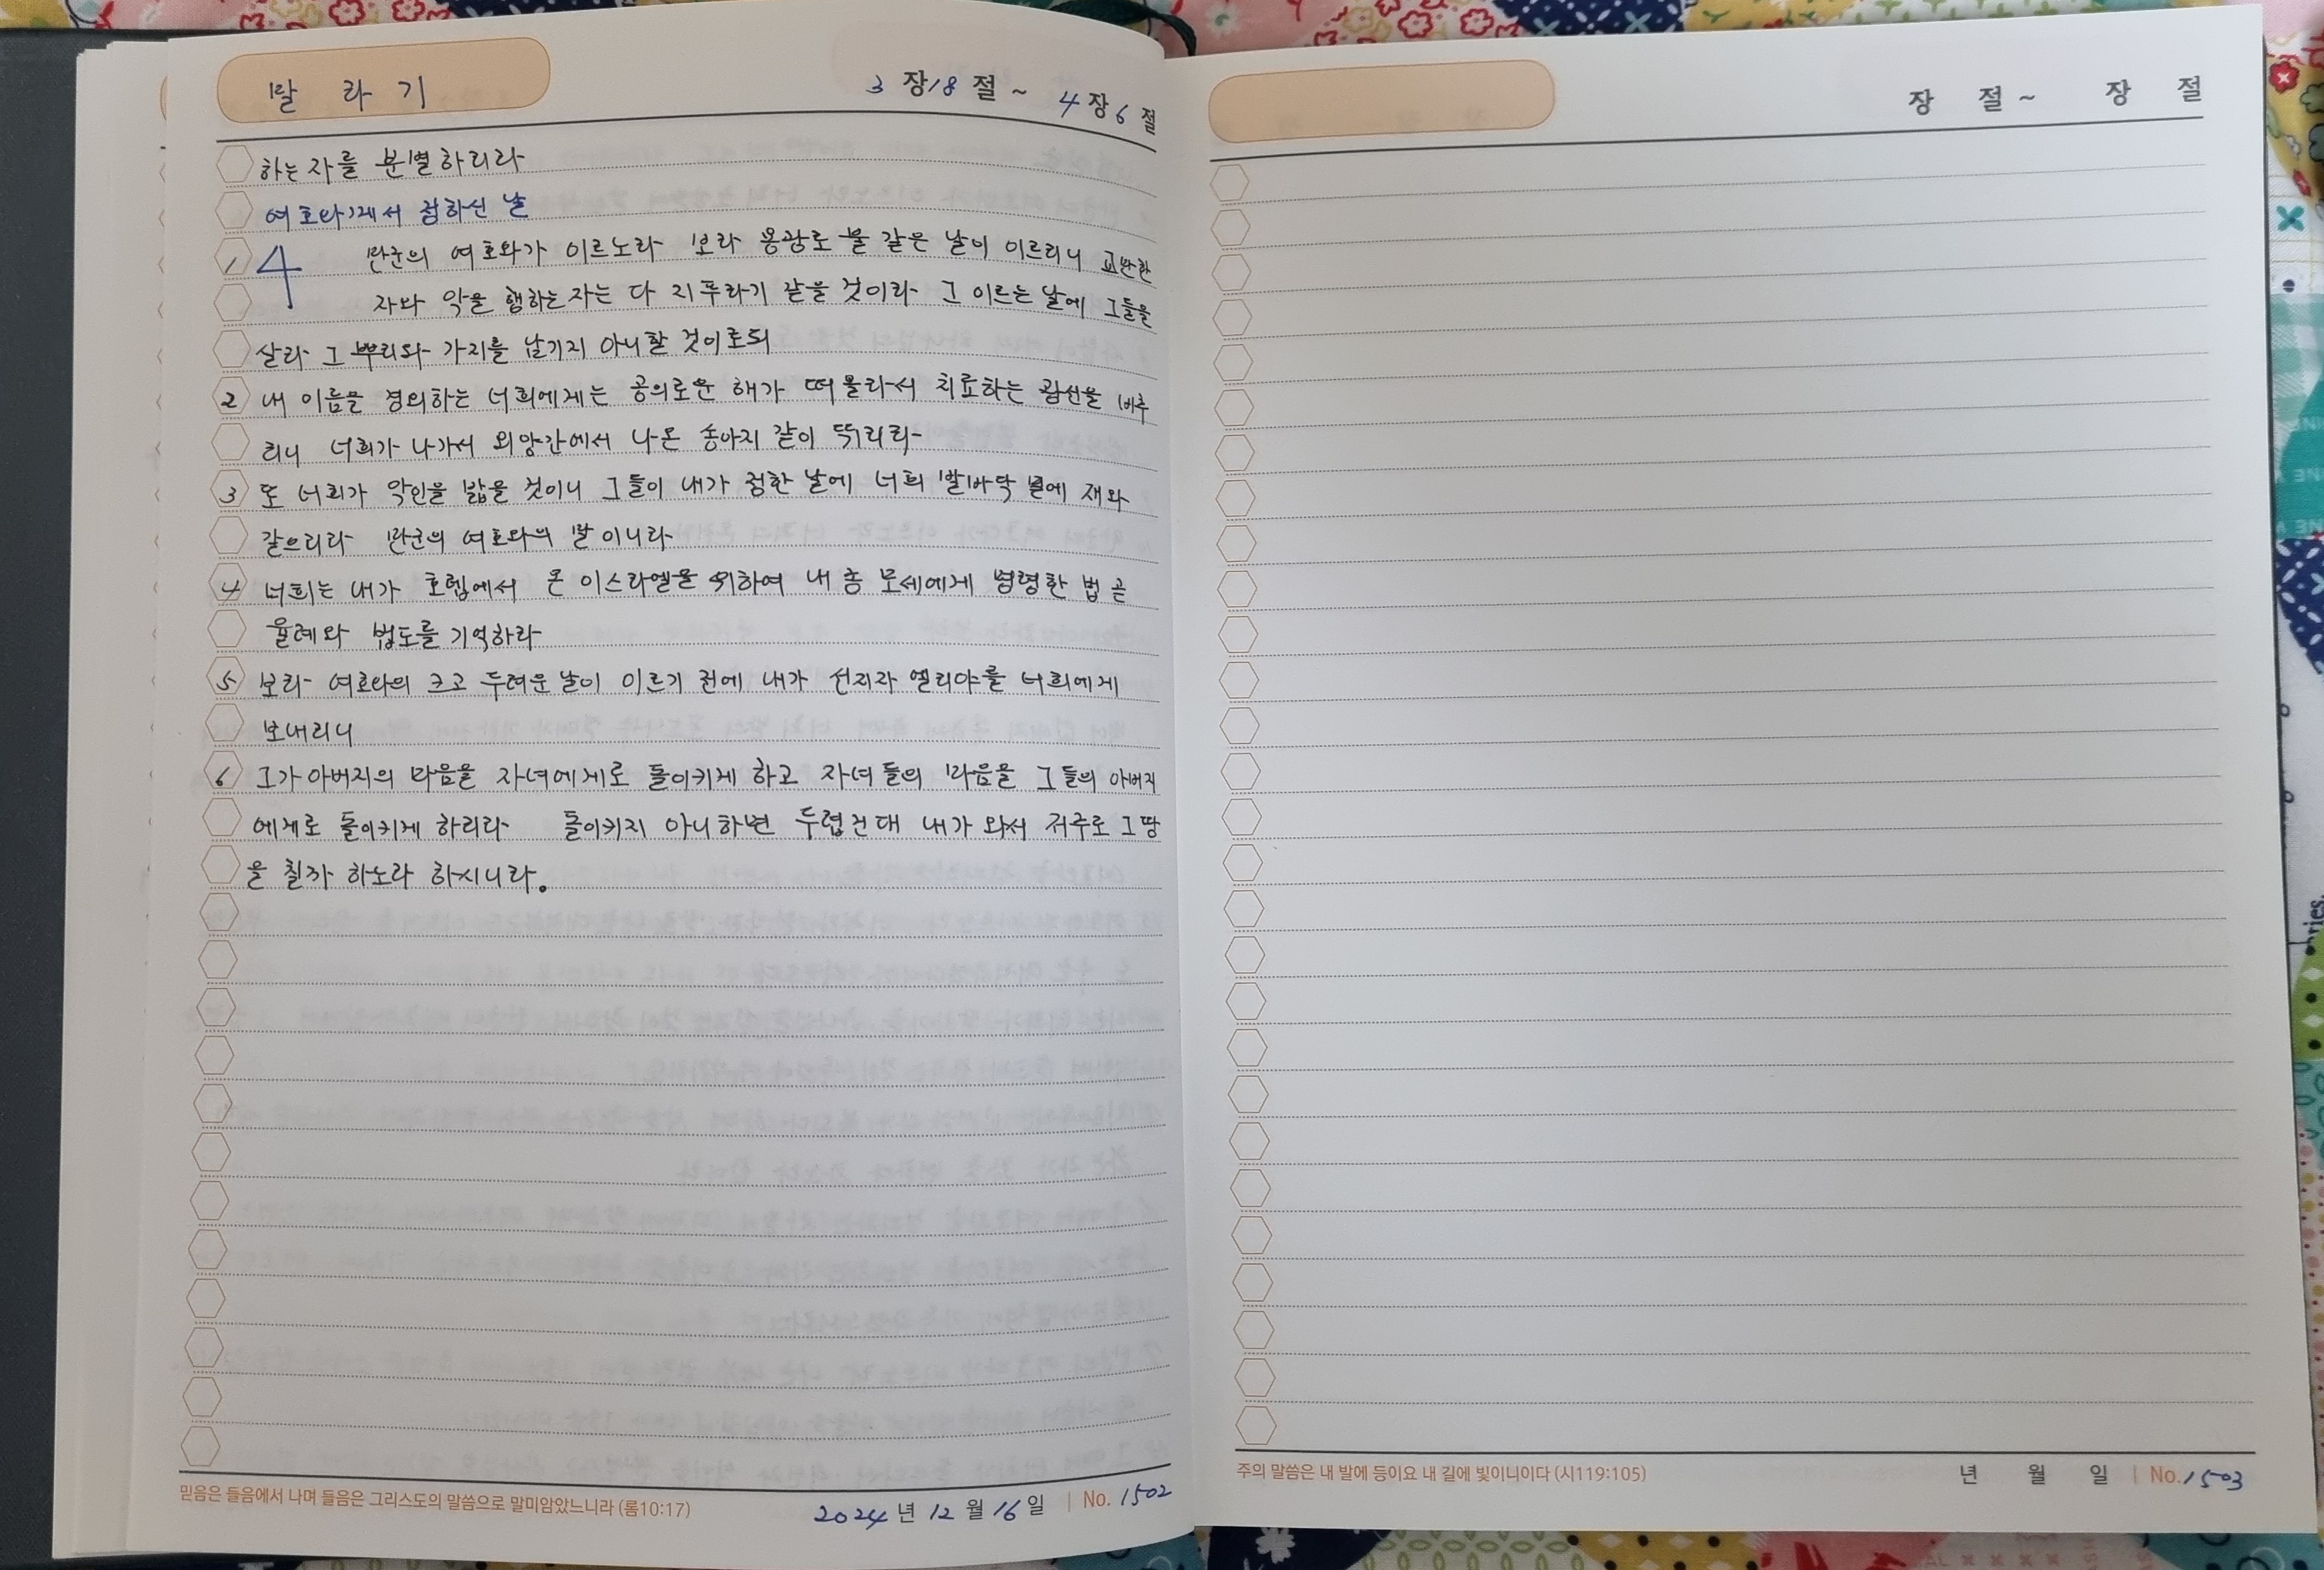 말 라 기
3 장 18 절 ~ 4 장 6 절
하는자를 분별하리라
여호와께서 정하신 날
1 4 만군의 여호와가 이르노라 보라 용광로 불 같은 날이 이르리니 교만한
자와 악을 행하는자는 다 지푸라기 같을 것이라 그 이르는 날에 그들을
살라 그 뿌리와 가지를 남기지 아니할 것이로되
2 내 이름을 경외하는 너희에게는 공의로운 해가 떠올라서 치료하는 광선을 비추
리니 너희가 나가서 외양간에서 나온 송아지 같이 뛰리라
3 또 너희가 악인을 밟을 것이니 그들이 내가 정한 날에 너희 발바닥 밑에 재와
같으리라 만군의 여호와의 말이니라
4 너희는 내가 호렙에서 온 이스라엘을 위하여 내 종 모세에게 명령한 법 곧
율례와 법도를 기억하라
5 보라 여호와의 크고 두려운 날이 이르기 전에 내가 선지자 엘리야를 너희에게
보내리니
6 그가 아버지의 마음을 자녀에게로 돌이키게 하고 자녀들의 마음을 그들의 아버지
에게로 돌이키게 하리라 돌이키지 아니하면 두렵건대 내가 와서 저주로 그 땅
을 칠까 하노라 하시니라.
믿음은 들음에서 나며 들음은 그리스도의 말씀으로 말미암았느니라 (롬10:17)
2024 년 12 월 16 일 | No. 1502
장 절 ~ 장 절
주의 말씀은 내 발에 등이요 내 길에 빛이니이다 (시119:105)
년 월 일 | No. 1503